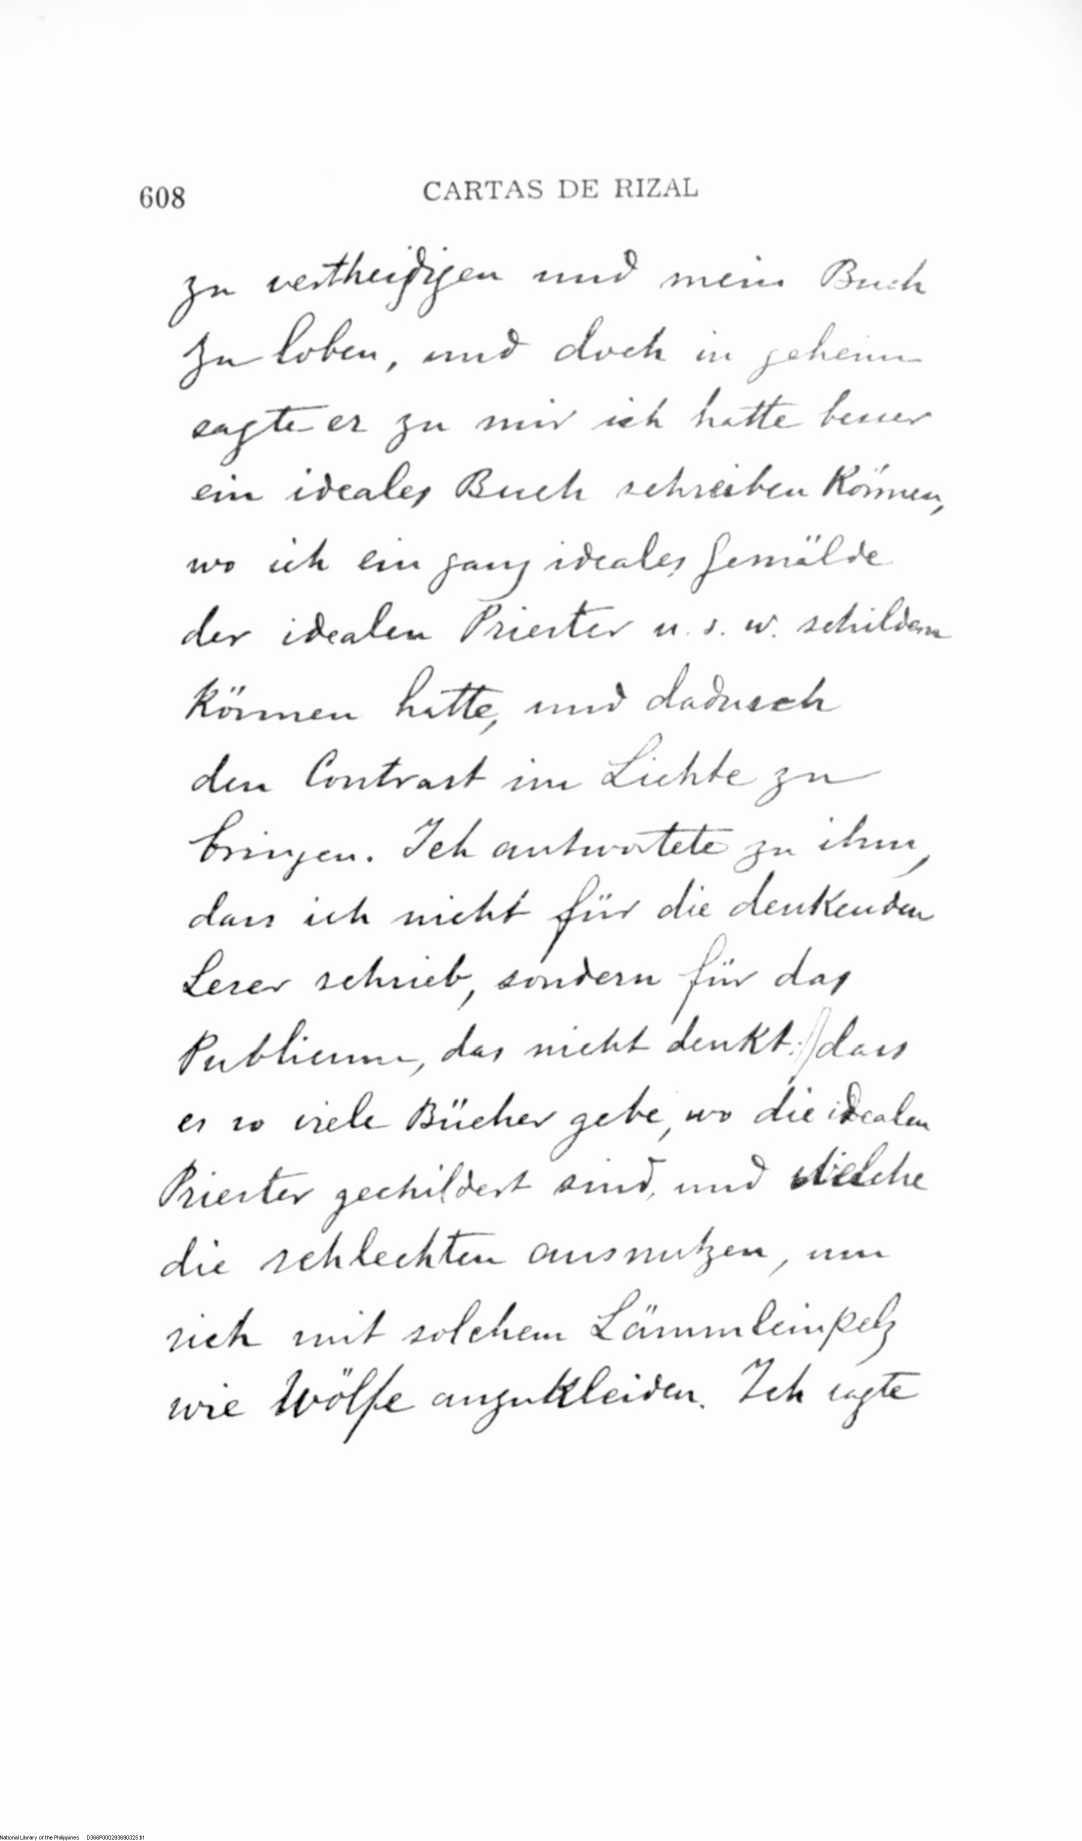 608
CARTAS DE RIZAL
zu vertheidigen und mein Buch
zu loben, und doch in geheim
sagte er zu mir ich hatte besser
ein ideales Buch schreiben können,
wo ich ein ganz ideales Gemälde
der idealen Priester u. s. w. schildern
können hatte, und dadurch
den Contrast im Lichte zu
bringen. Ich antwortete zu ihm,
dass ich nicht für die denkenden
Leser schrieb, sondern für das
Publicum, das nicht denkt: dass
es so viele Bücher gebe, wo die idealen
Priester geschildert sind, und welche
die schlechten ausnutzen, um
sich mit solchem Lämmleinpelz
wie Wölfe anzukleiden. Ich sagte
National Library of the Philippines